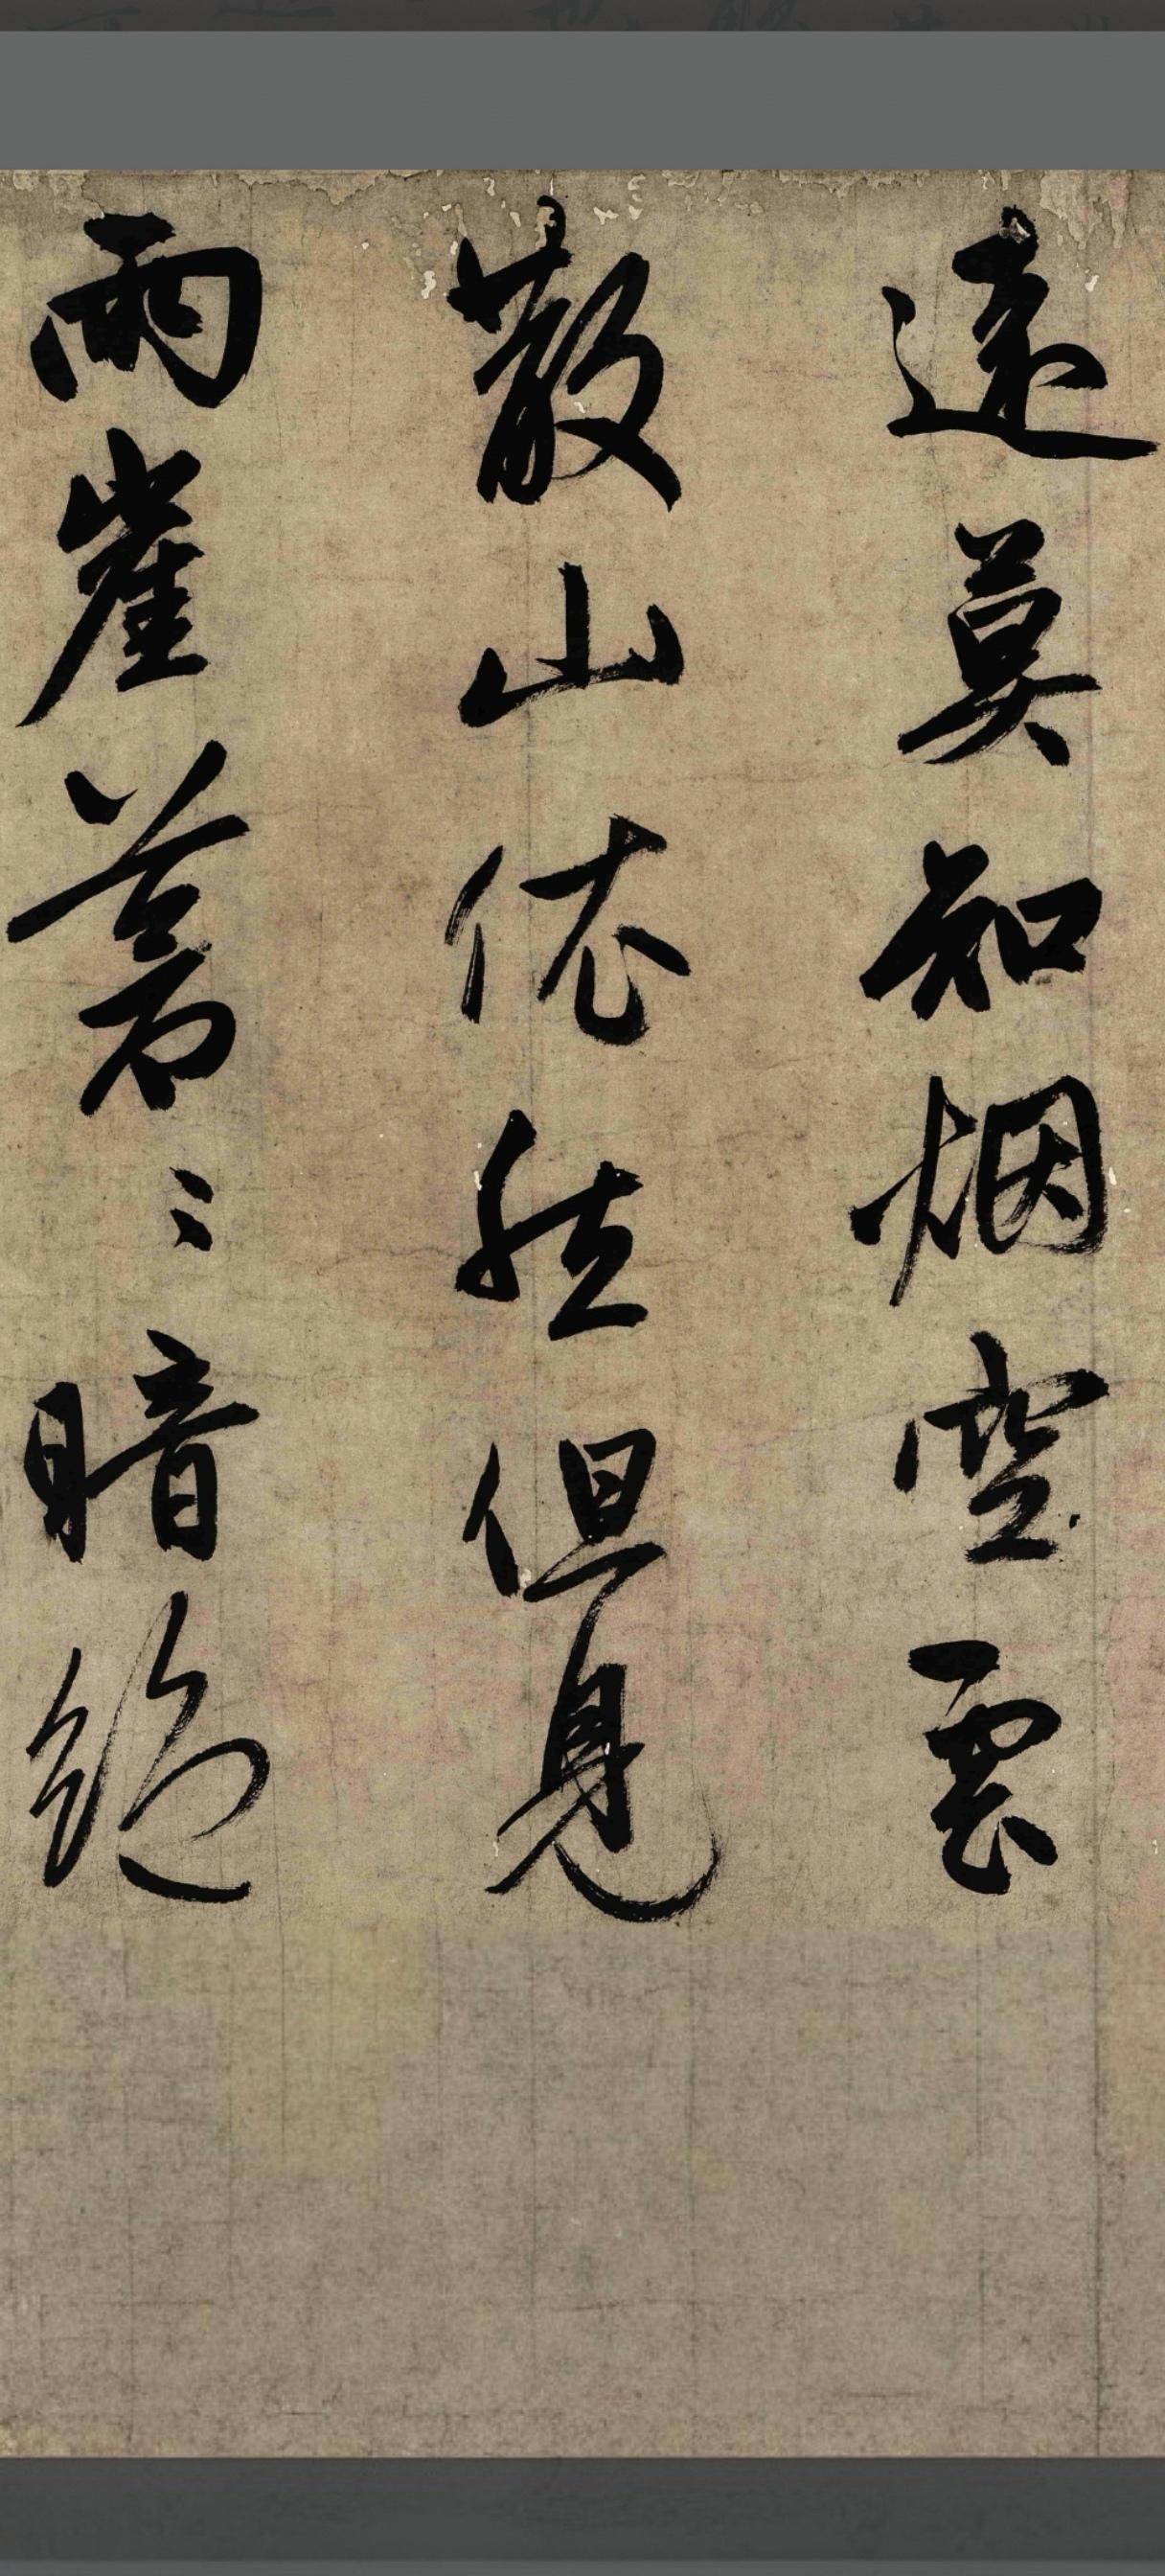 遠莫知烟空雲
散山依然但見
兩崖蒼〻暗絕